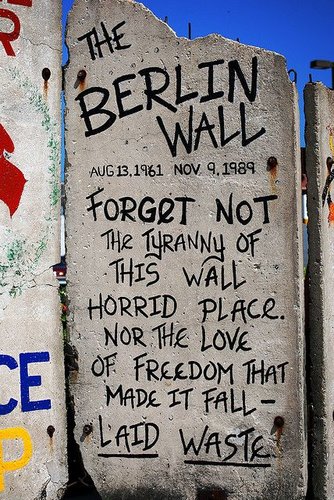 THE
BERLIN
WALL
AUG 13, 1961 NOV. 9, 1989
FORGET NOT
THE TYRANNY OF
THIS WALL
HORRID PLACE.
NOR THE LOVE
OF FREEDOM THAT
MADE IT FALL –
LAID WASTE
R
CE
P